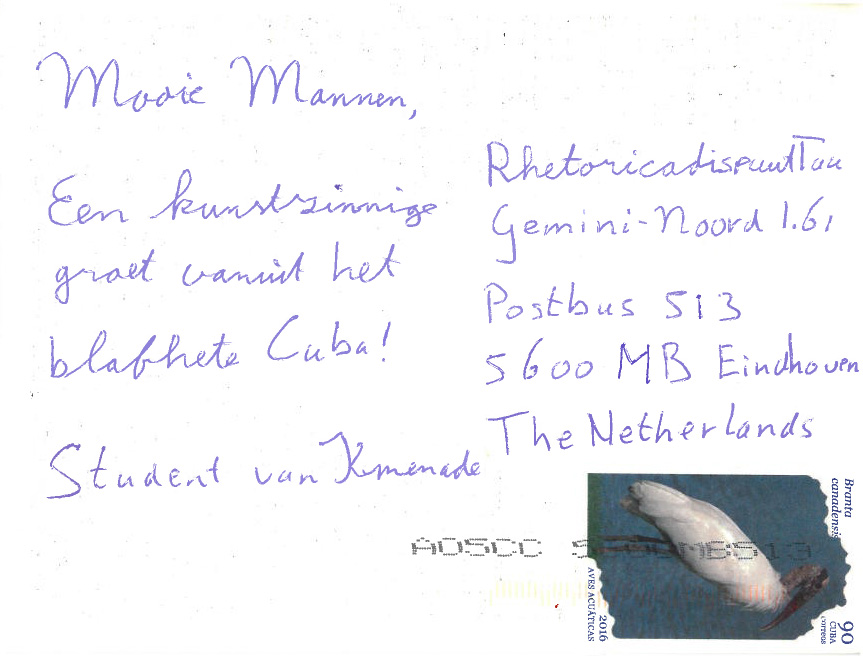 Mooie Mannen,
Een kunstzinnige
groet vanuit het
blafhete Cuba!
Student van Kemenade
Rhetoricadispuut Tau
Gemini-Noord 1.61
Postbus 513
5600 MB Eindhoven
The Netherlands
Branta
canadensis
90
CUBA
correos
2016
AVES ACUÁTICAS